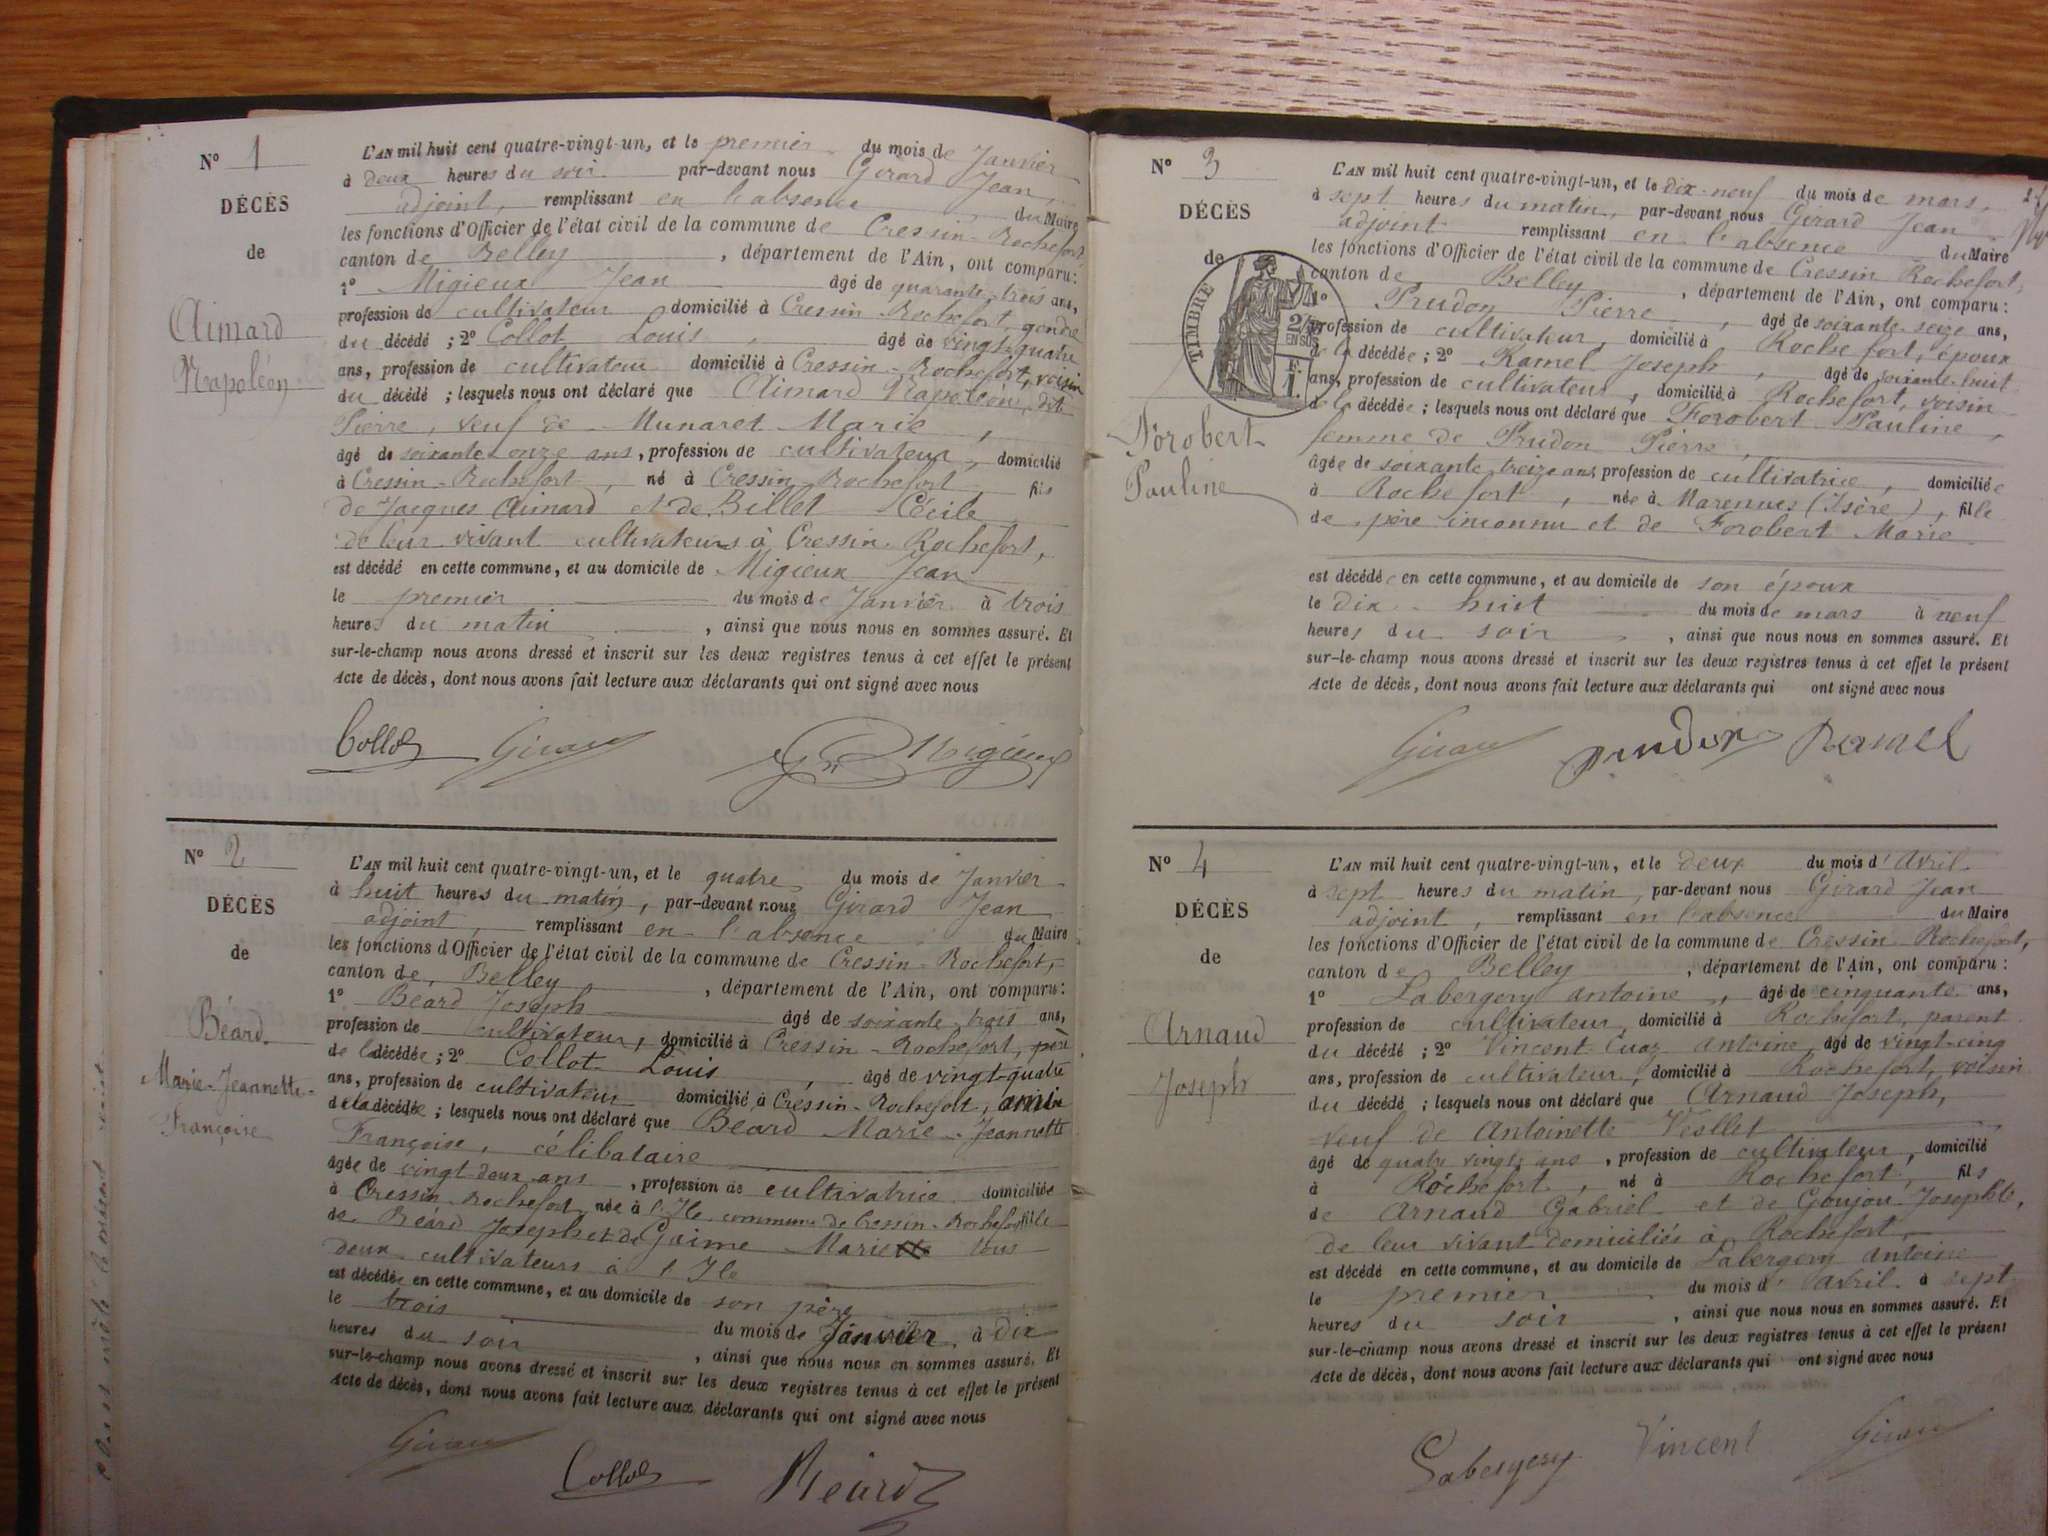 N° 1
DÉCÈS
de
Aimard
Napoléon
L'AN mil huit cent quatre-vingt-un, et le premier du mois de Janvier
à deux heures du soir par-devant nous Girard Jean
adjoint, remplissant en l'absence du Maire
les fonctions d'Officier de l'état civil de la commune de Cressin-Rochefort,
canton de Belley, département de l'Ain, ont comparu:
1° Migieux Jean âgé de quarante-trois ans,
profession de cultivateur domicilié à Cressin-Rochefort, gendre
du décédé ; 2° Collot Louis, âgé de vingt-quatre
ans, profession de cultivateur domicilié à Cressin-Rochefort, voisin
du décédé ; lesquels nous ont déclaré que Aimard Napoléon, dit
Pierre, veuf de Munaret Marie,
âgé de soixante-onze ans, profession de cultivateur, domicilié
à Cressin-Rochefort, né à Cressin-Rochefort, fils
de Jacques Aimard et de Billet Cécile
de leur vivant cultivateurs à Cressin-Rochefort,
est décédé en cette commune, et au domicile de Migieux Jean
le premier du mois de Janvier à trois
heures du matin, ainsi que nous nous en sommes assuré. Et
sur-le-champ nous avons dressé et inscrit sur les deux registres tenus à cet effet le présent
Acte de décès, dont nous avons fait lecture aux déclarants qui ont signé avec nous
Collot Girard Migieux
N° 2
DÉCÈS
de
Béard
Marie-Jeannette-
Françoise
L'AN mil huit cent quatre-vingt-un, et le quatre du mois de Janvier
à huit heures du matin, par-devant nous Girard Jean
adjoint, remplissant en l'absence du Maire
les fonctions d'Officier de l'état civil de la commune de Cressin-Rochefort,
canton de Belley, département de l'Ain, ont comparu:
1° Béard Joseph âgé de soixante-trois ans,
profession de cultivateur, domicilié à Cressin-Rochefort, père
de la décédée ; 2° Collot Louis, âgé de vingt-quatre
ans, profession de cultivateur domicilié à Cressin-Rochefort, ami
de la décédée ; lesquels nous ont déclaré que Béard Marie-Jeannette
Françoise, célibataire
âgée de vingt-deux ans, profession de cultivatrice domiciliée
à Cressin-Rochefort, née à l'Ile commune de Cressin-Rochefort fille
de Béard Joseph et de Guime Marie tous
deux cultivateurs à l'Ile
est décédée en cette commune, et au domicile de son père
le trois du mois de Janvier, à dix
heures du soir, ainsi que nous nous en sommes assuré. Et
sur-le-champ nous avons dressé et inscrit sur les deux registres tenus à cet effet le présent
Acte de décès, dont nous avons fait lecture aux déclarants qui ont signé avec nous
Girard
Collot Béard
N° 3
DÉCÈS
de
TIMBRE
2/10
EN SUS
F.
1.
Forobert
Pauline
L'AN mil huit cent quatre-vingt-un, et le dix-neuf du mois de mars,
à sept heures du matin, par-devant nous Girard Jean
adjoint remplissant en l'absence du Maire
les fonctions d'Officier de l'état civil de la commune de Cressin Rochefort,
canton de Belley, département de l'Ain, ont comparu:
1° Prudon Pierre, âgé de soixante-seize ans,
profession de cultivateur, domicilié à Rochefort, époux
de la décédée ; 2° Ramel Joseph, âgé de soixante-huit
ans, profession de cultivateur, domicilié à Rochefort, voisin
de la décédée ; lesquels nous ont déclaré que Forobert Pauline,
femme de Prudon Pierre,
âgée de soixante-treize ans, profession de cultivatrice, domiciliée
à Rochefort, née à Marennes (Isère), fille
de père inconnu et de Forobert Marie
est décédée en cette commune, et au domicile de son époux
le dix-huit du mois de mars à neuf
heures du soir, ainsi que nous nous en sommes assuré. Et
sur-le-champ nous avons dressé et inscrit sur les deux registres tenus à cet effet le présent
Acte de décès, dont nous avons fait lecture aux déclarants qui ont signé avec nous
Girard prudon Ramel
N° 4
DÉCÈS
de
Arnaud
Joseph
L'AN mil huit cent quatre-vingt-un, et le deux du mois d'Avril
à sept heures du matin, par-devant nous Girard Jean
adjoint, remplissant en l'absence du Maire
les fonctions d'Officier de l'état civil de la commune de Cressin Rochefort,
canton de Belley, département de l'Ain, ont comparu:
1° Labergery Antoine, âgé de cinquante ans,
profession de cultivateur, domicilié à Rochefort, parent
du décédé ; 2° Vincent Cuaz Antoine, âgé de vingt-cinq
ans, profession de cultivateur, domicilié à Rochefort, voisin
du décédé ; lesquels nous ont déclaré que Arnaud Joseph,
veuf de Antoinette Veillet
âgé de quatre vingts ans, profession de cultivateur, domicilié
à Rochefort, né à Rochefort, fils
de Arnaud Gabriel et de Goujou Josephte,
de leur vivant domiciliés à Rochefort,
est décédé en cette commune, et au domicile de Labergery Antoine
le premier du mois d'Avril à sept
heures du soir, ainsi que nous nous en sommes assuré. Et
sur-le-champ nous avons dressé et inscrit sur les deux registres tenus à cet effet le présent
Acte de décès, dont nous avons fait lecture aux déclarants qui ont signé avec nous
Labergery Vincent Girard